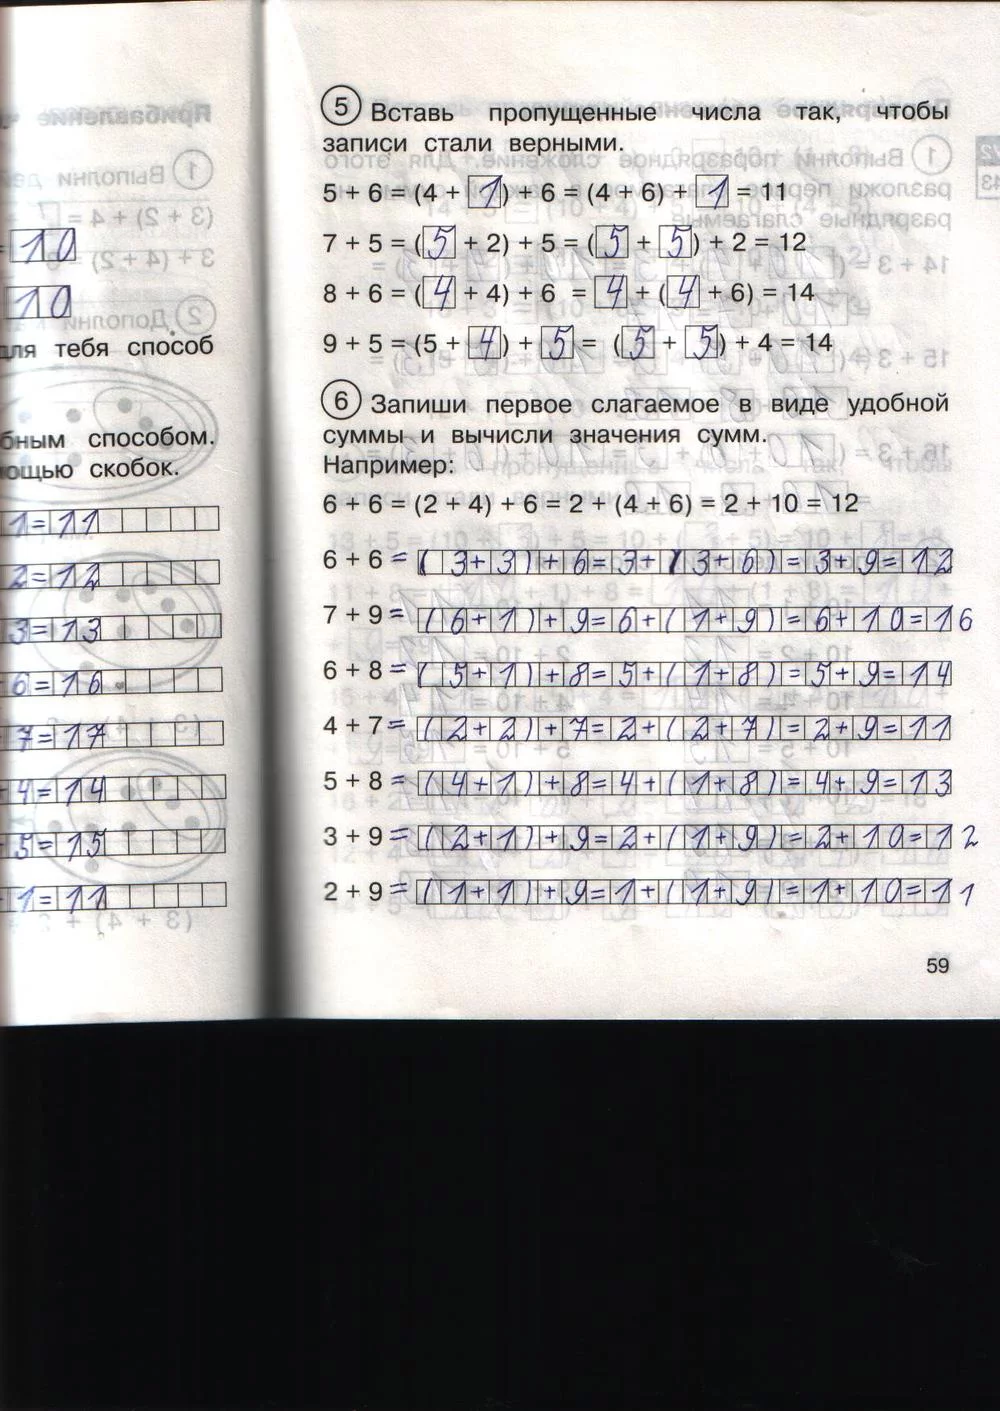 10
10
для тебя способ
бным способом.
ощью скобок.
1=11
2=12
3=13
6=16
7=17
4=14
5=15
1=11
5 Вставь пропущенные числа так, чтобы
записи стали верными.
5 + 6 = (4 + 1) + 6 = (4 + 6) + 1 = 11
7 + 5 = (5 + 2) + 5 = (5 + 5) + 2 = 12
8 + 6 = (4 + 4) + 6 = 4 + (4 + 6) = 14
9 + 5 = (5 + 4) + 5 = (5 + 5) + 4 = 14
6 Запиши первое слагаемое в виде удобной
суммы и вычисли значения сумм.
Например:
6 + 6 = (2 + 4) + 6 = 2 + (4 + 6) = 2 + 10 = 12
6 + 6 = (3+3)+6=3+(3+6)=3+9=12
7 + 9 = (6+1)+9=6+(1+9)=6+10=16
6 + 8 = (5+1)+8=5+(1+8)=5+9=14
4 + 7 = (2+2)+7=2+(2+7)=2+9=11
5 + 8 = (4+1)+8=4+(1+8)=4+9=13
3 + 9 = (2+1)+9=2+(1+9)=2+10=12
2 + 9 = (1+1)+9=1+(1+9)=1+10=11
59